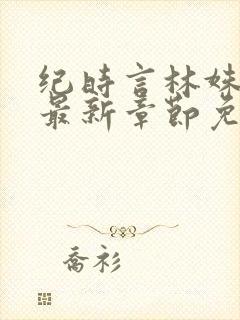 纪时言林妹
最新章节免
乔衫